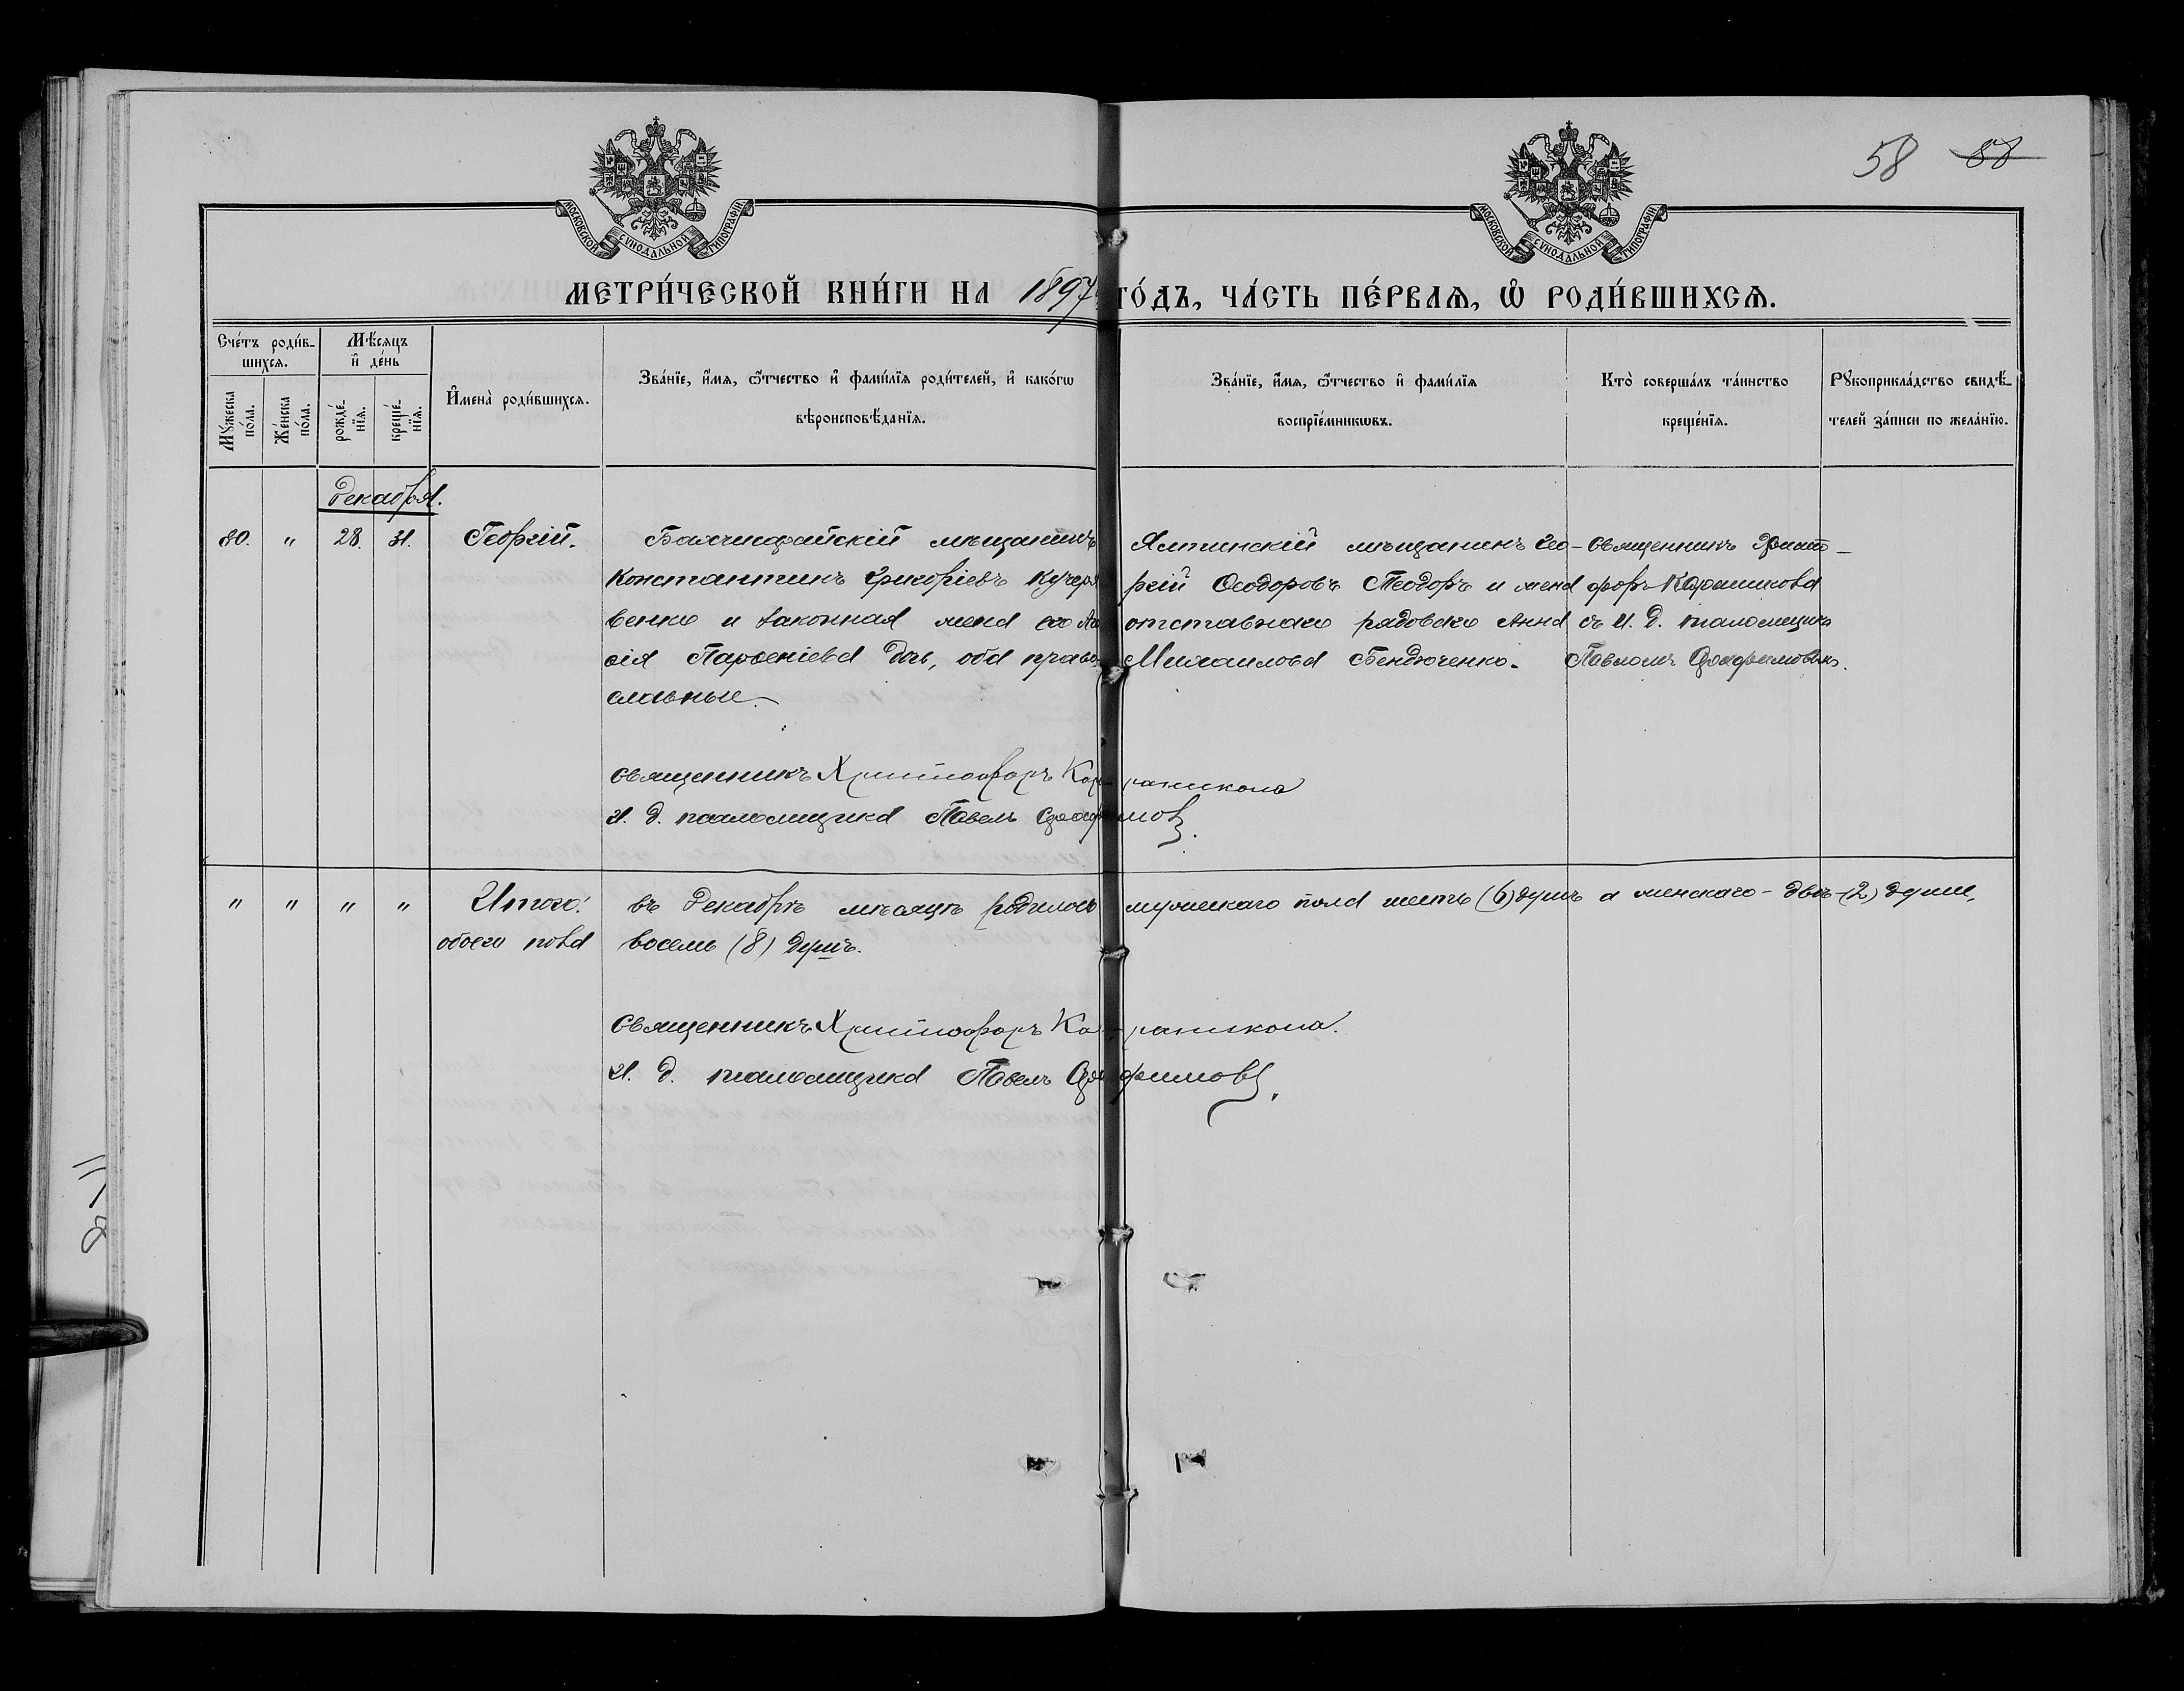 58 58
МОСКОВСКОЙ СУНОДАЛЬНОЙ ТИПОГРАФІИ
МОСКОВСКОЙ СУНОДАЛЬНОЙ ТИПОГРАФІИ
МЕТРИ́ЧЕСКОЙ КНИ́ГИ НА 1897 ГО́ДЪ, ЧА́СТЬ ПЕ́РВАѦ, Ѡ҆ РОДИ́ВШИХСѦ.
Сче́тъ роди́в-
шихсѧ.
Мꙋ́жеска по́ла.
Же́нска по́ла.
Мѣ́сѧцъ
и҆ де́нь
рожде́-
нїѧ.
креще́-
нїѧ.
И҆мена̀ роди́вшихсѧ.
Зва́нїе, и҆́мѧ, ѻ҆́тчество и҆ фами́лїѧ роди́телей, и҆ како́гѡ
вѣроисповѣ́данїѧ.
Зва́нїе, и҆́мѧ, ѻ҆́тчество и҆ фами́лїѧ
воспрїе́мникѡвъ.
Кто̀ соверша́лъ та́инство
креще́нїѧ.
Рꙋкоприкла́дство свидѣ́-
телей за́писи по жела́нїю.
Декабря.
80. " 28. 31. Георгій.
Бахчисарайскій мѣщанинъ
Константинъ Григоріевъ Кучеря
венко и законная жена его
Парѳеніева дочь, оба право
славные.
Ялтинскій мѣщанинъ Гео-
ргій Ѳеодоровъ Теодоръ и жена
отставнаго рядоваго Анна
Михаилова Бендюченко.
Священникъ Христо-
форъ
съ И. Д. псаломщика
Павломъ
Священникъ Христофоръ
И. д. псаломщика Павелъ
" " " " Итого: въ Декабрѣ мѣсяцѣ родилось мужескаго пола шесть (6) душъ а женскаго - двѣ - (2) души,
обоего пола восемь (8) душъ.
Священникъ Христофоръ
И. д. псаломщика Павелъ